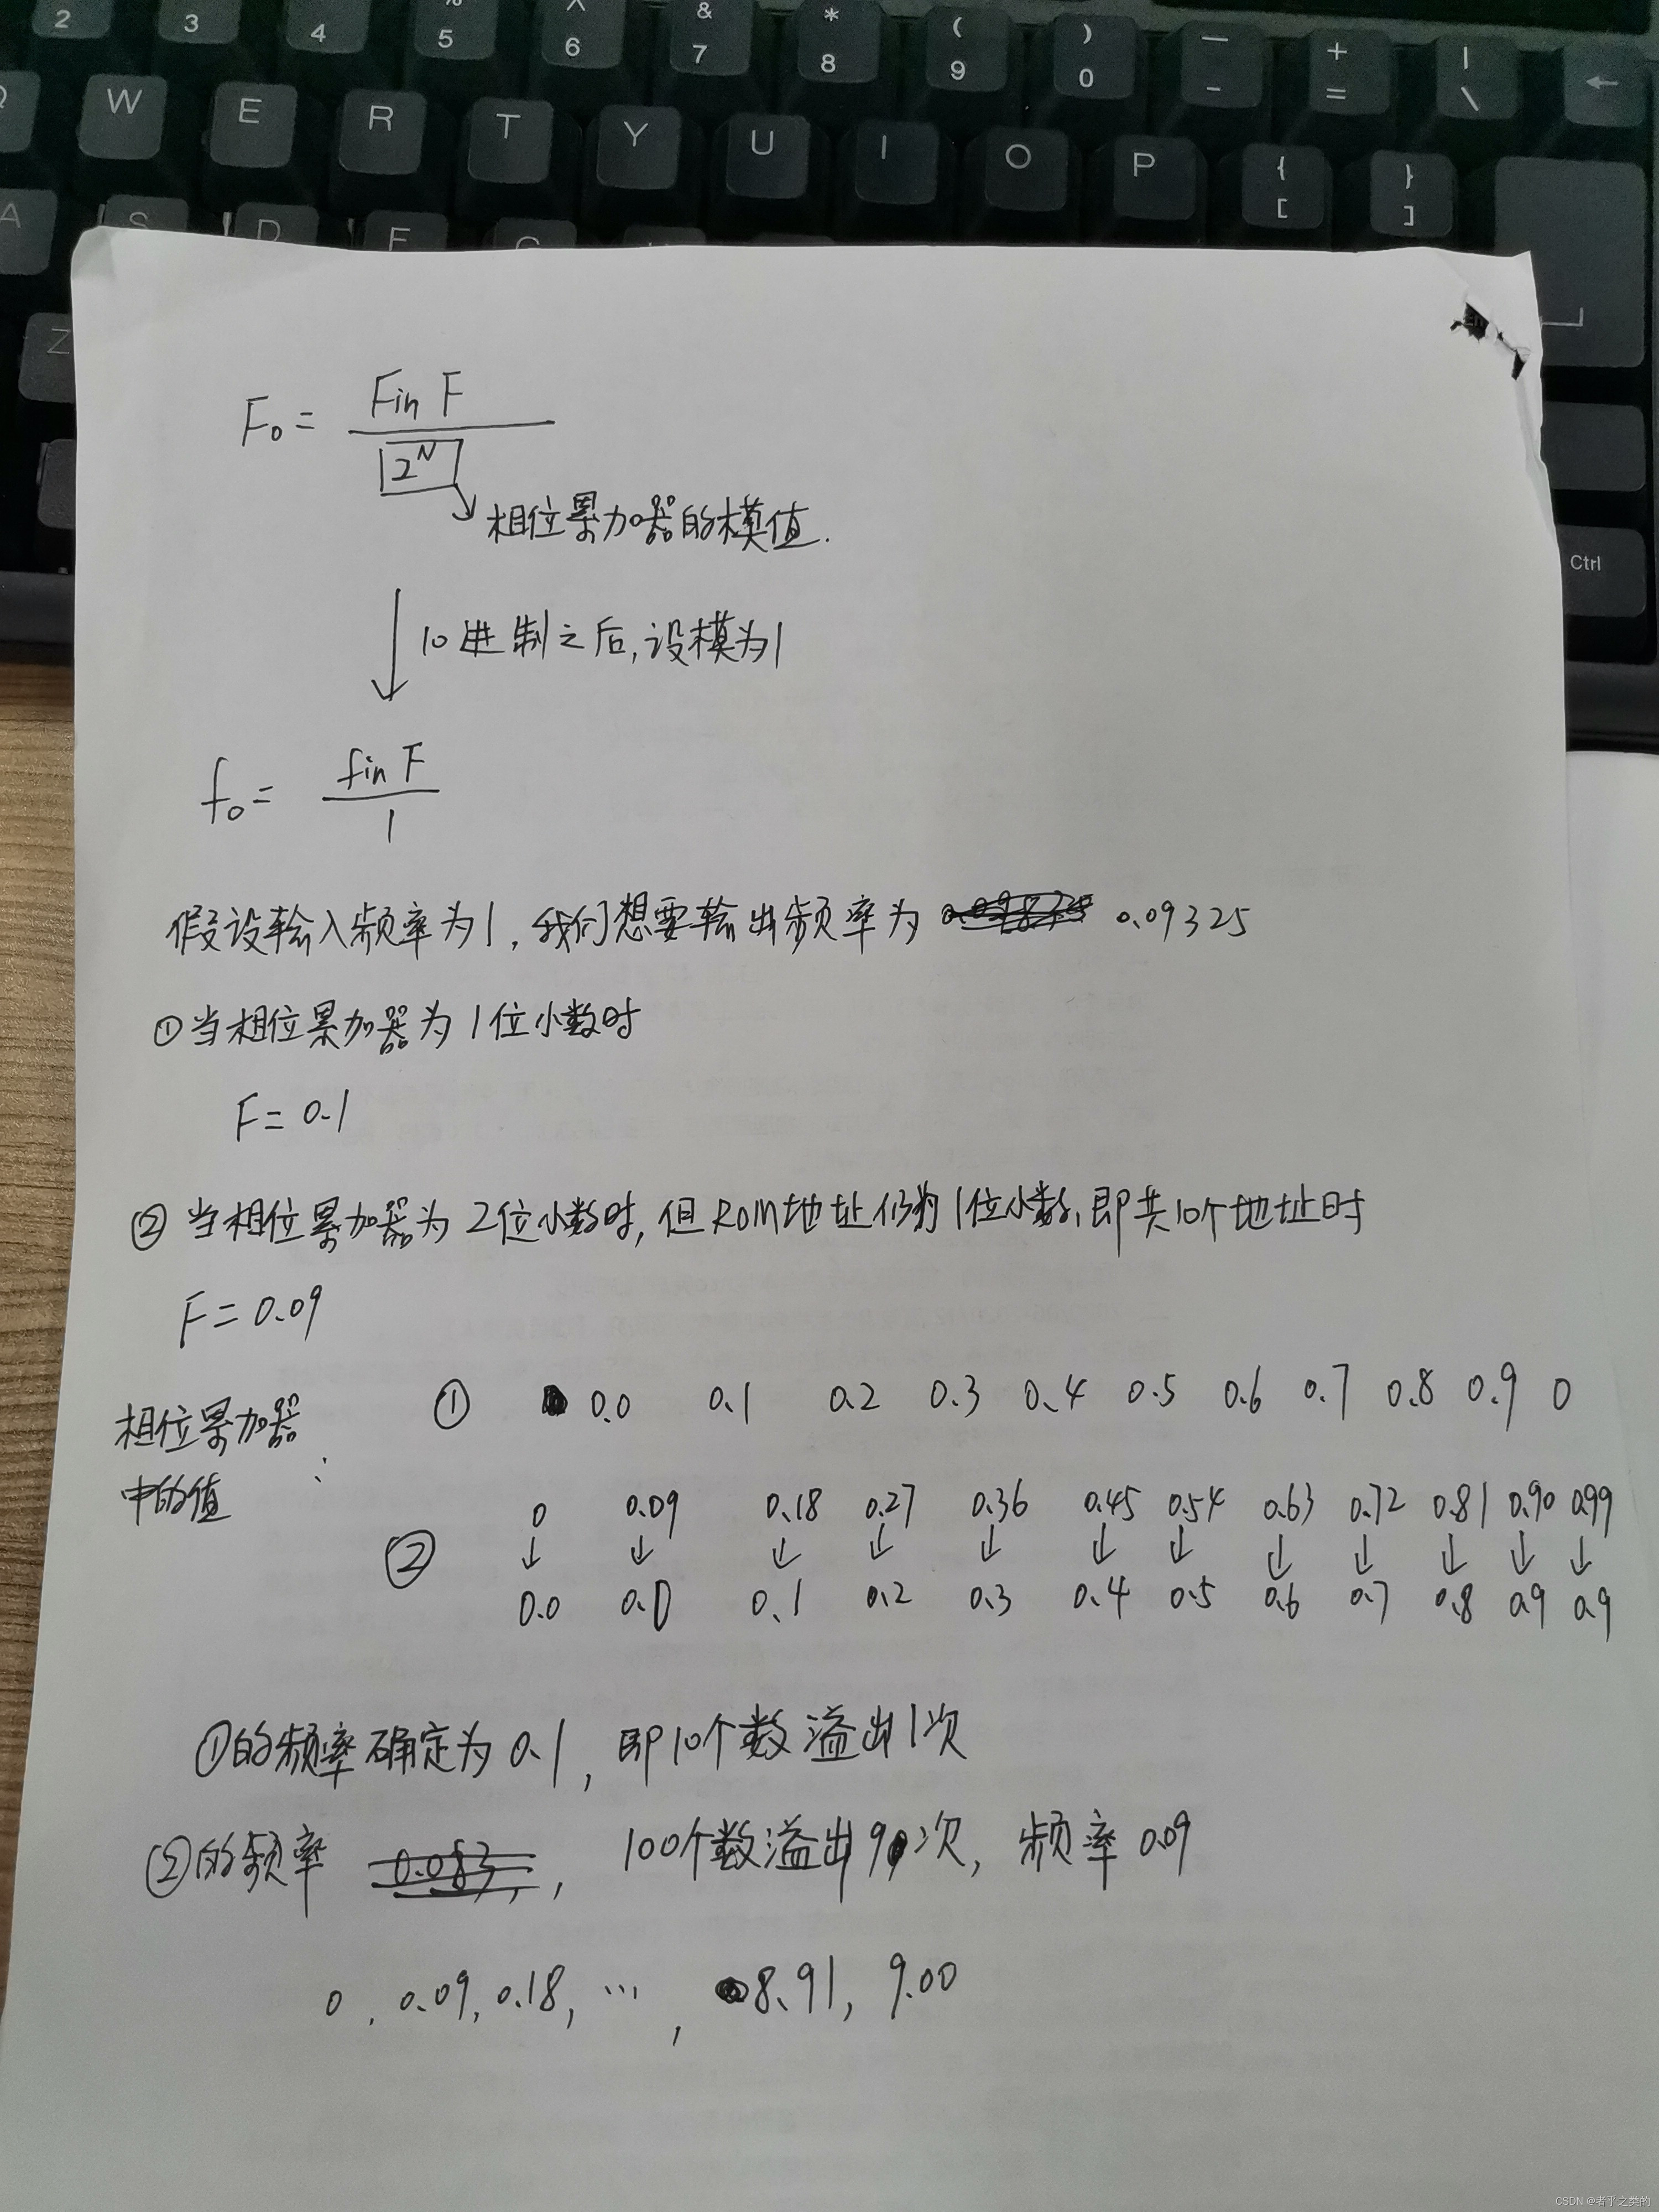 2 3 4 % 5 ^ 6 & 7 * 8 ( 9 ) 0 — - + = | \ ←
Q W E R T Y U I O P { [ } ]
A S D F G
Z
Ctrl
F₀ = Fin F / 2^N
相位累加器的模值.
10进制之后,设模为1
f₀ = fin F / 1
假设输入频率为1, 我们想要输出频率为 0.09325
①当相位累加器为1位小数时
F = 0.1
② 当相位累加器为2位小数时, 但ROM地址仍为1位小数, 即共10个地址时
F = 0.09
相位累加器
中的值 :
① 0.0 0.1 0.2 0.3 0.4 0.5 0.6 0.7 0.8 0.9 0
② 0 0.09 0.18 0.27 0.36 0.45 0.54 0.63 0.72 0.81 0.90 0.99
↓ ↓ ↓ ↓ ↓ ↓ ↓ ↓ ↓ ↓ ↓ ↓
0.0 0.0 0.1 0.2 0.3 0.4 0.5 0.6 0.7 0.8 0.9 0.9
①的频率确定为0.1, 即10个数溢出1次
②的频率 0.083, , 100个数溢出9次, 频率0.09
0, 0.09, 0.18, ..., 8.91, 9.00
CSDN @者乎之类的